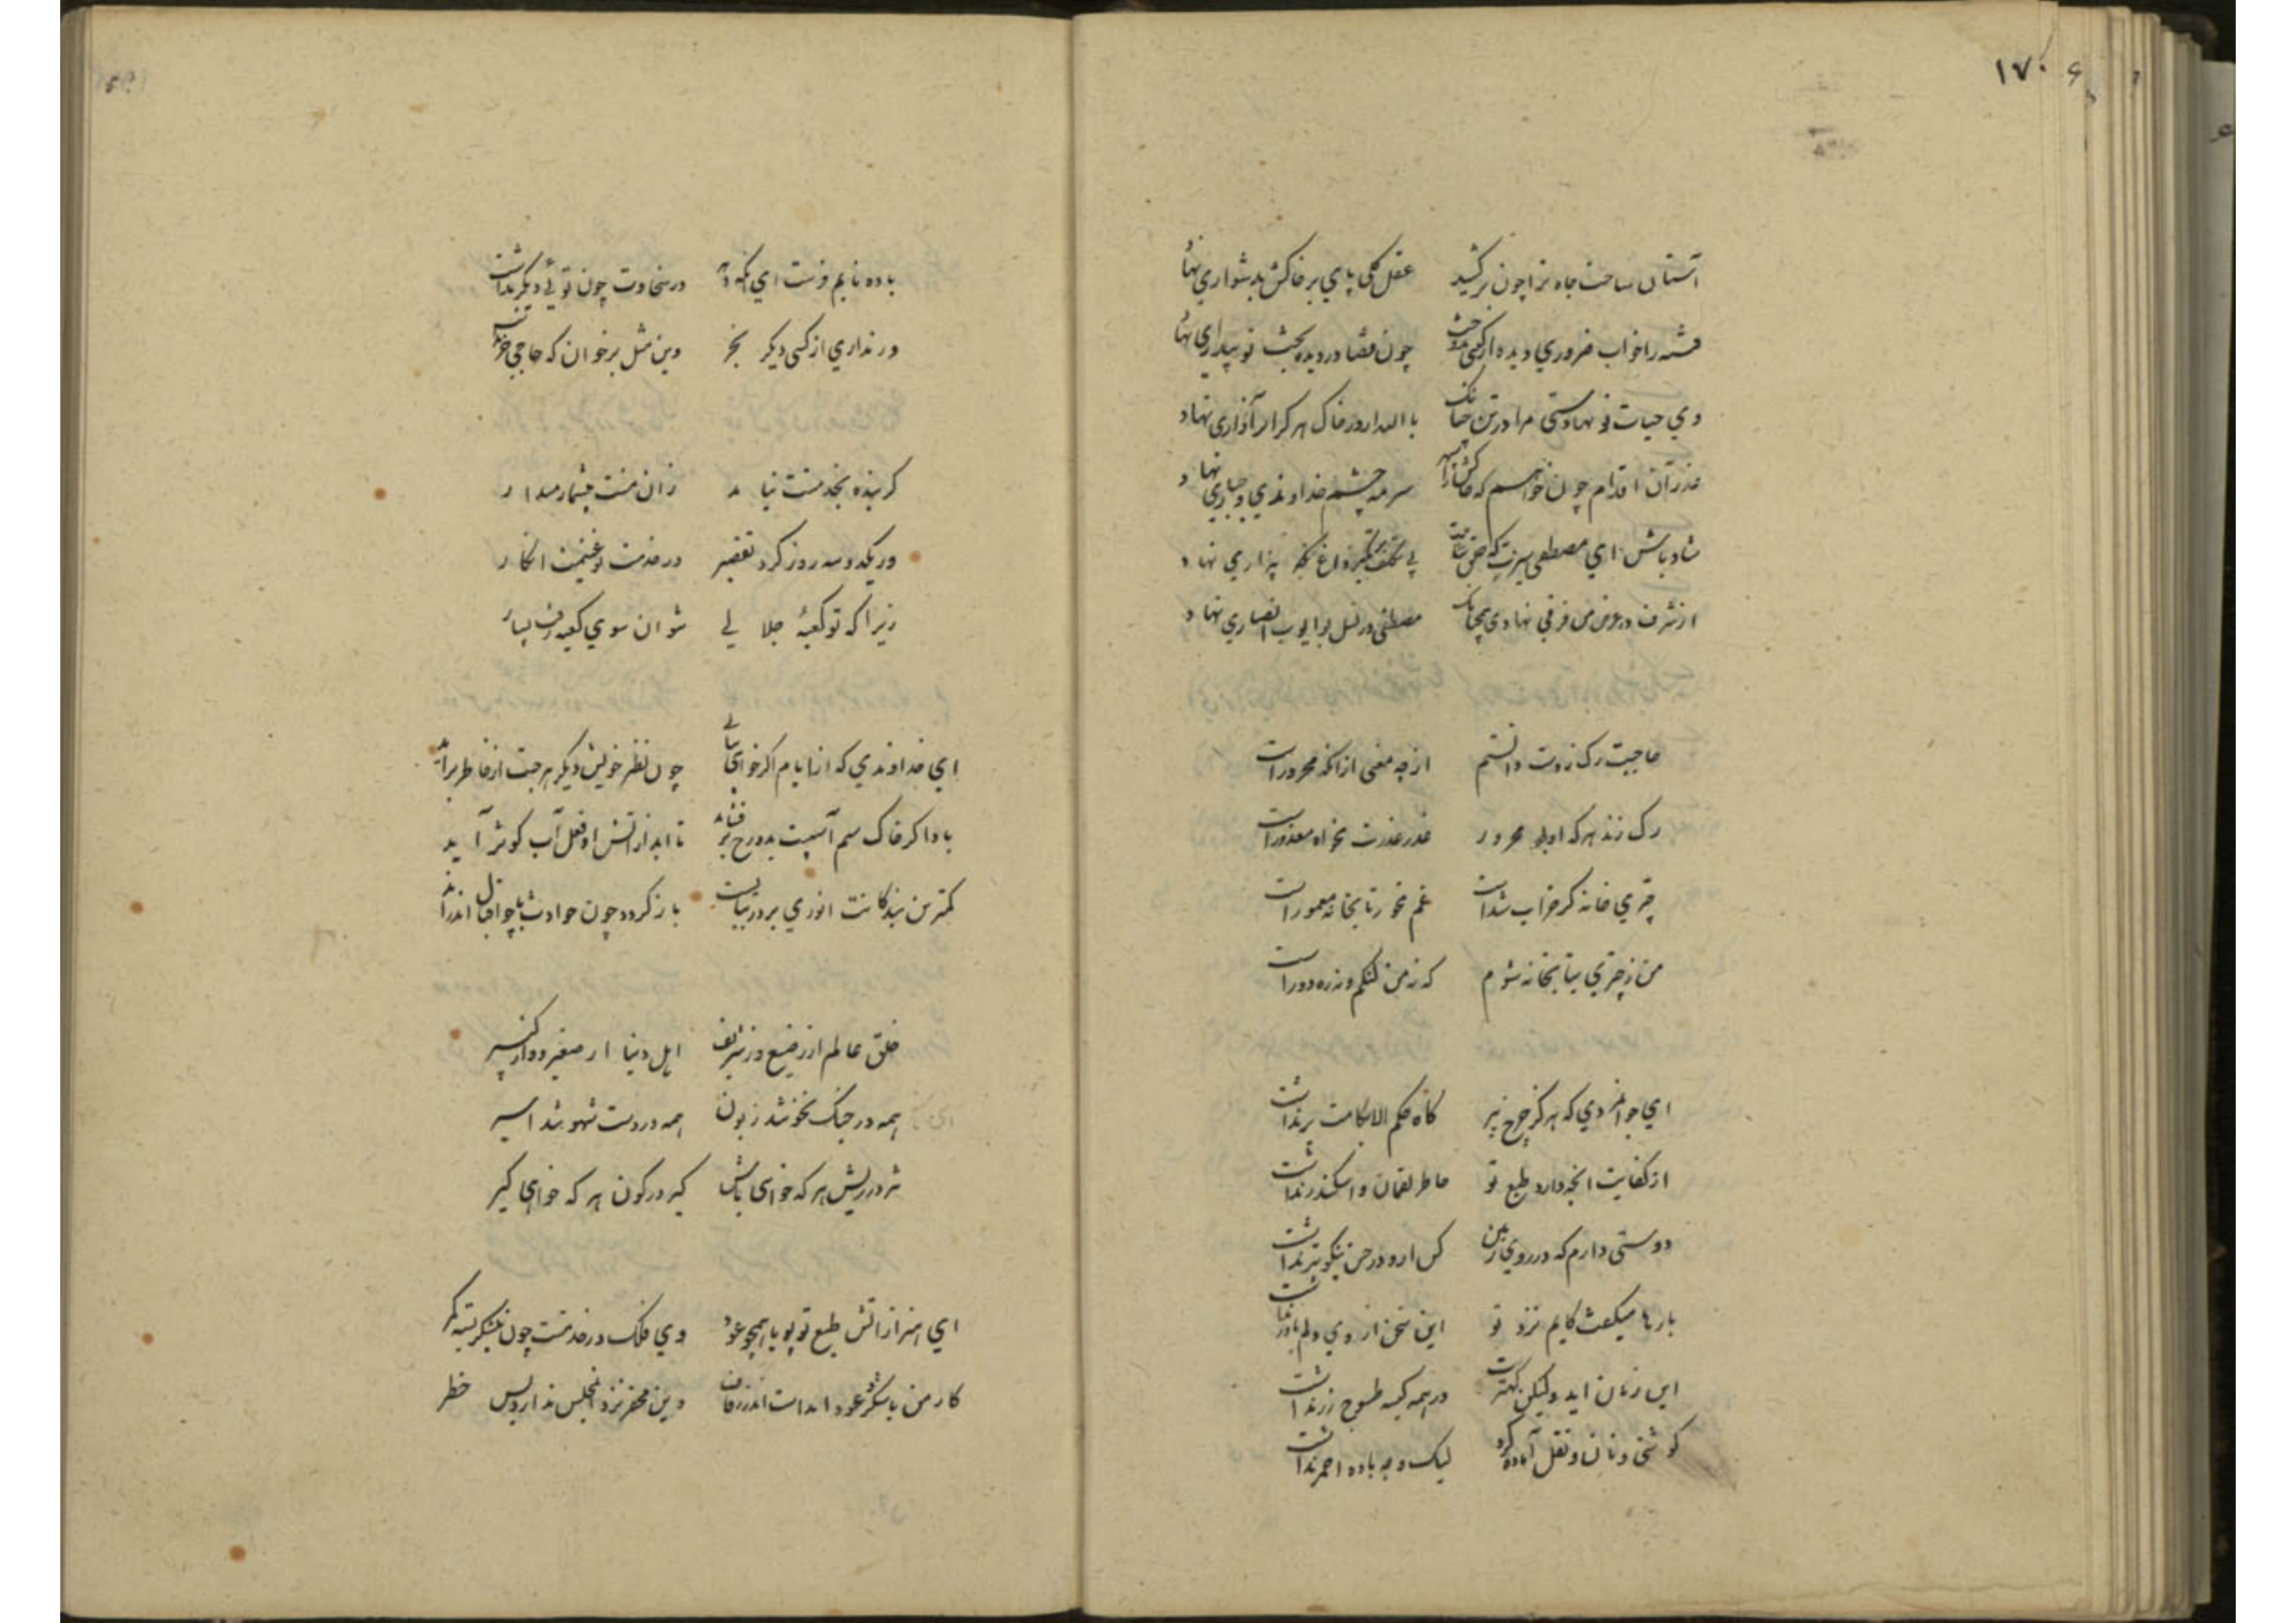 ۱۷۰
آستان ساحت جاه ترا چون برکشید عقل کلی پای بر خاکش بدشواری نهاد
فتنه را خواب ضروری دیده از کیتی بدوخت چون قضا در دیده بخت تو بیداری نهاد
وی حیات نو نهادستی مرا در تن چنانک با الله ار در خاک هرکز ابر آذاری نهاد
عذر آن اقدام چون خواهم که خاکش را سپهر سرمه چشم خداوندی و جباری نهاد
شاد باش ای مصطفی سیرت که خلقت بی تکلف بر داغ بیزاری نهاد
از شرف در عرض من فرقی نهادی همچنانک مصطفی در نسل بو ایوب انصاری نهاد
حاجبت رک زدت دانستم از چه معنی ازانکه محرورست
رک زند هر که او بود محرور عذر عذرت بخواه معذورست
چتری خانه کر خراب شدست غم مخور تابخانه معمورست
من ز چتری بتابخانه شوم که نه من لنکم و نه ره دورست
ای جوانمردی که هرکز چرخ پیر کاه حکم الا بکامت بر نداشت
از کفایت انچه دارد طبع تو خاطر لقمان و اسکندر نداشت
دوستی دارم که در روی زمین کس ازو در حسن نیکوتر نداشت
بارها میکفت کایم نزد تو این سخن از وی دلم باور نداشت
این زمان آمد ولیکن کهترت در همه کیسه طسوج زر نداشت
کوشتی و نان و نقل آماده کرد لیک وجه باده احمر نداشت
باده نابم فرست ای آنکه در سخاوت چون تویی دیکر نداشت
ور نداری از کسی دیکر بخر وین مثل برخوان که حاجی خر نداشت
کر بنده بخدمتت نیامد زان منت بیشمار میدار
ور یکدو سه روز کرد تقصیر در خدمت تو غنیمت انکار
زیرا که تو کعبهٔ جلالی نتوان سوی کعبه رفت بسیار
ای خداوندی که از ایام اکر خواهی بیابی چون نظیر خویش دیکر هر چت از خاطر برآید
باد اکر خاک سم اسبت بدوزخ بر فشاند تا ابد از آتش او فعل آب کوثر آید
کمترین بندکانت انوری بر در بپایست باز کردد چون حوادث یا چو اقبال اندر آید
خلق عالم از وضیع و ز شریف اهل دنیا از صغیر و از کبیر
همه در جنک نخوت زبون همه در دست شهوتند اسیر
تیز در ریش هر که خواهی باش کیر در کون هر که خواهی کیر
ای هنر از آتش طبع تو بویا همچو عود وی فلک در خدمتت چون نیشکر بسته کمر
کار من با شکر و عود امدست اندر زفاف وین محقر نزد مجلس ندارد بس خطر